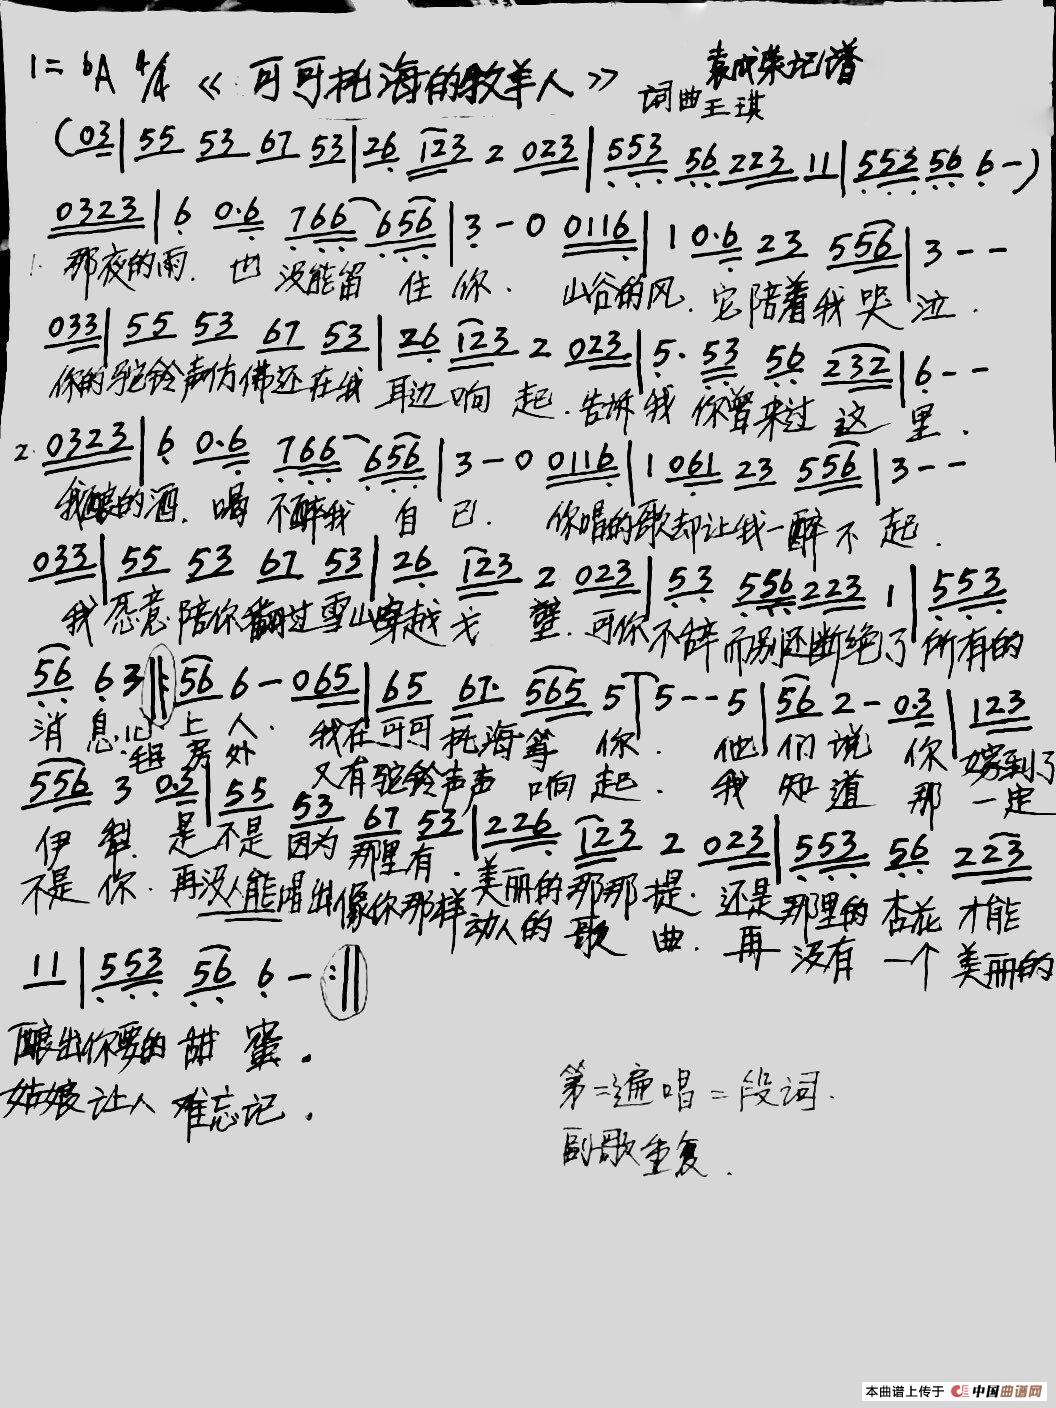 1=ᵇA 4/4 《可可托海的牧羊人》 袁成荣记谱
词曲王琪
(03|55 53 67 53|26 123 2 023|553 56 223 11|553 56 6-)
0323|6 0·6 766 656|3-0 0116|1 0·6 23 556|3--
1. 那夜的雨. 也没能留住你. 山谷的风. 它陪着我哭泣.
033|55 53 67 53|26 123 2 023|5· 53 56 232|6--
你的驼铃声仿佛还在我耳边响起. 告诉我你曾来过这里.
2. 0323|6 0·6 766 656|3-0 0116|1 061 23 556|3--
我酿的酒. 喝不醉我自己. 你唱的歌却让我一醉不起.
033|55 53 67 53|26 123 2 023|53 556 223 1|553
我愿意陪你翻过雪山穿越戈壁. 可你不辞而别还断绝了所有的
56 63 56 6-065|65 67· 565 5|5--5|56 2-0·3|123
消息. 心上人. 我在可可托海等你. 他们说你嫁到了
毡房外 又有驼铃声声响起. 我知道那一定
556 3 0·3|55 53 67 53|226 123 2 023|553 56 223
伊犁. 是不是因为那里有. 美丽的那那提. 还是那里的杏花才能
不是你. 再没人能唱出像你那样动人的歌曲. 再没有一个美丽的
11|553 56 6-:‖
酿出你要的甜蜜.
姑娘让人难忘记.
第二遍唱二段词.
副歌重复.
本曲谱上传于 中国曲谱网